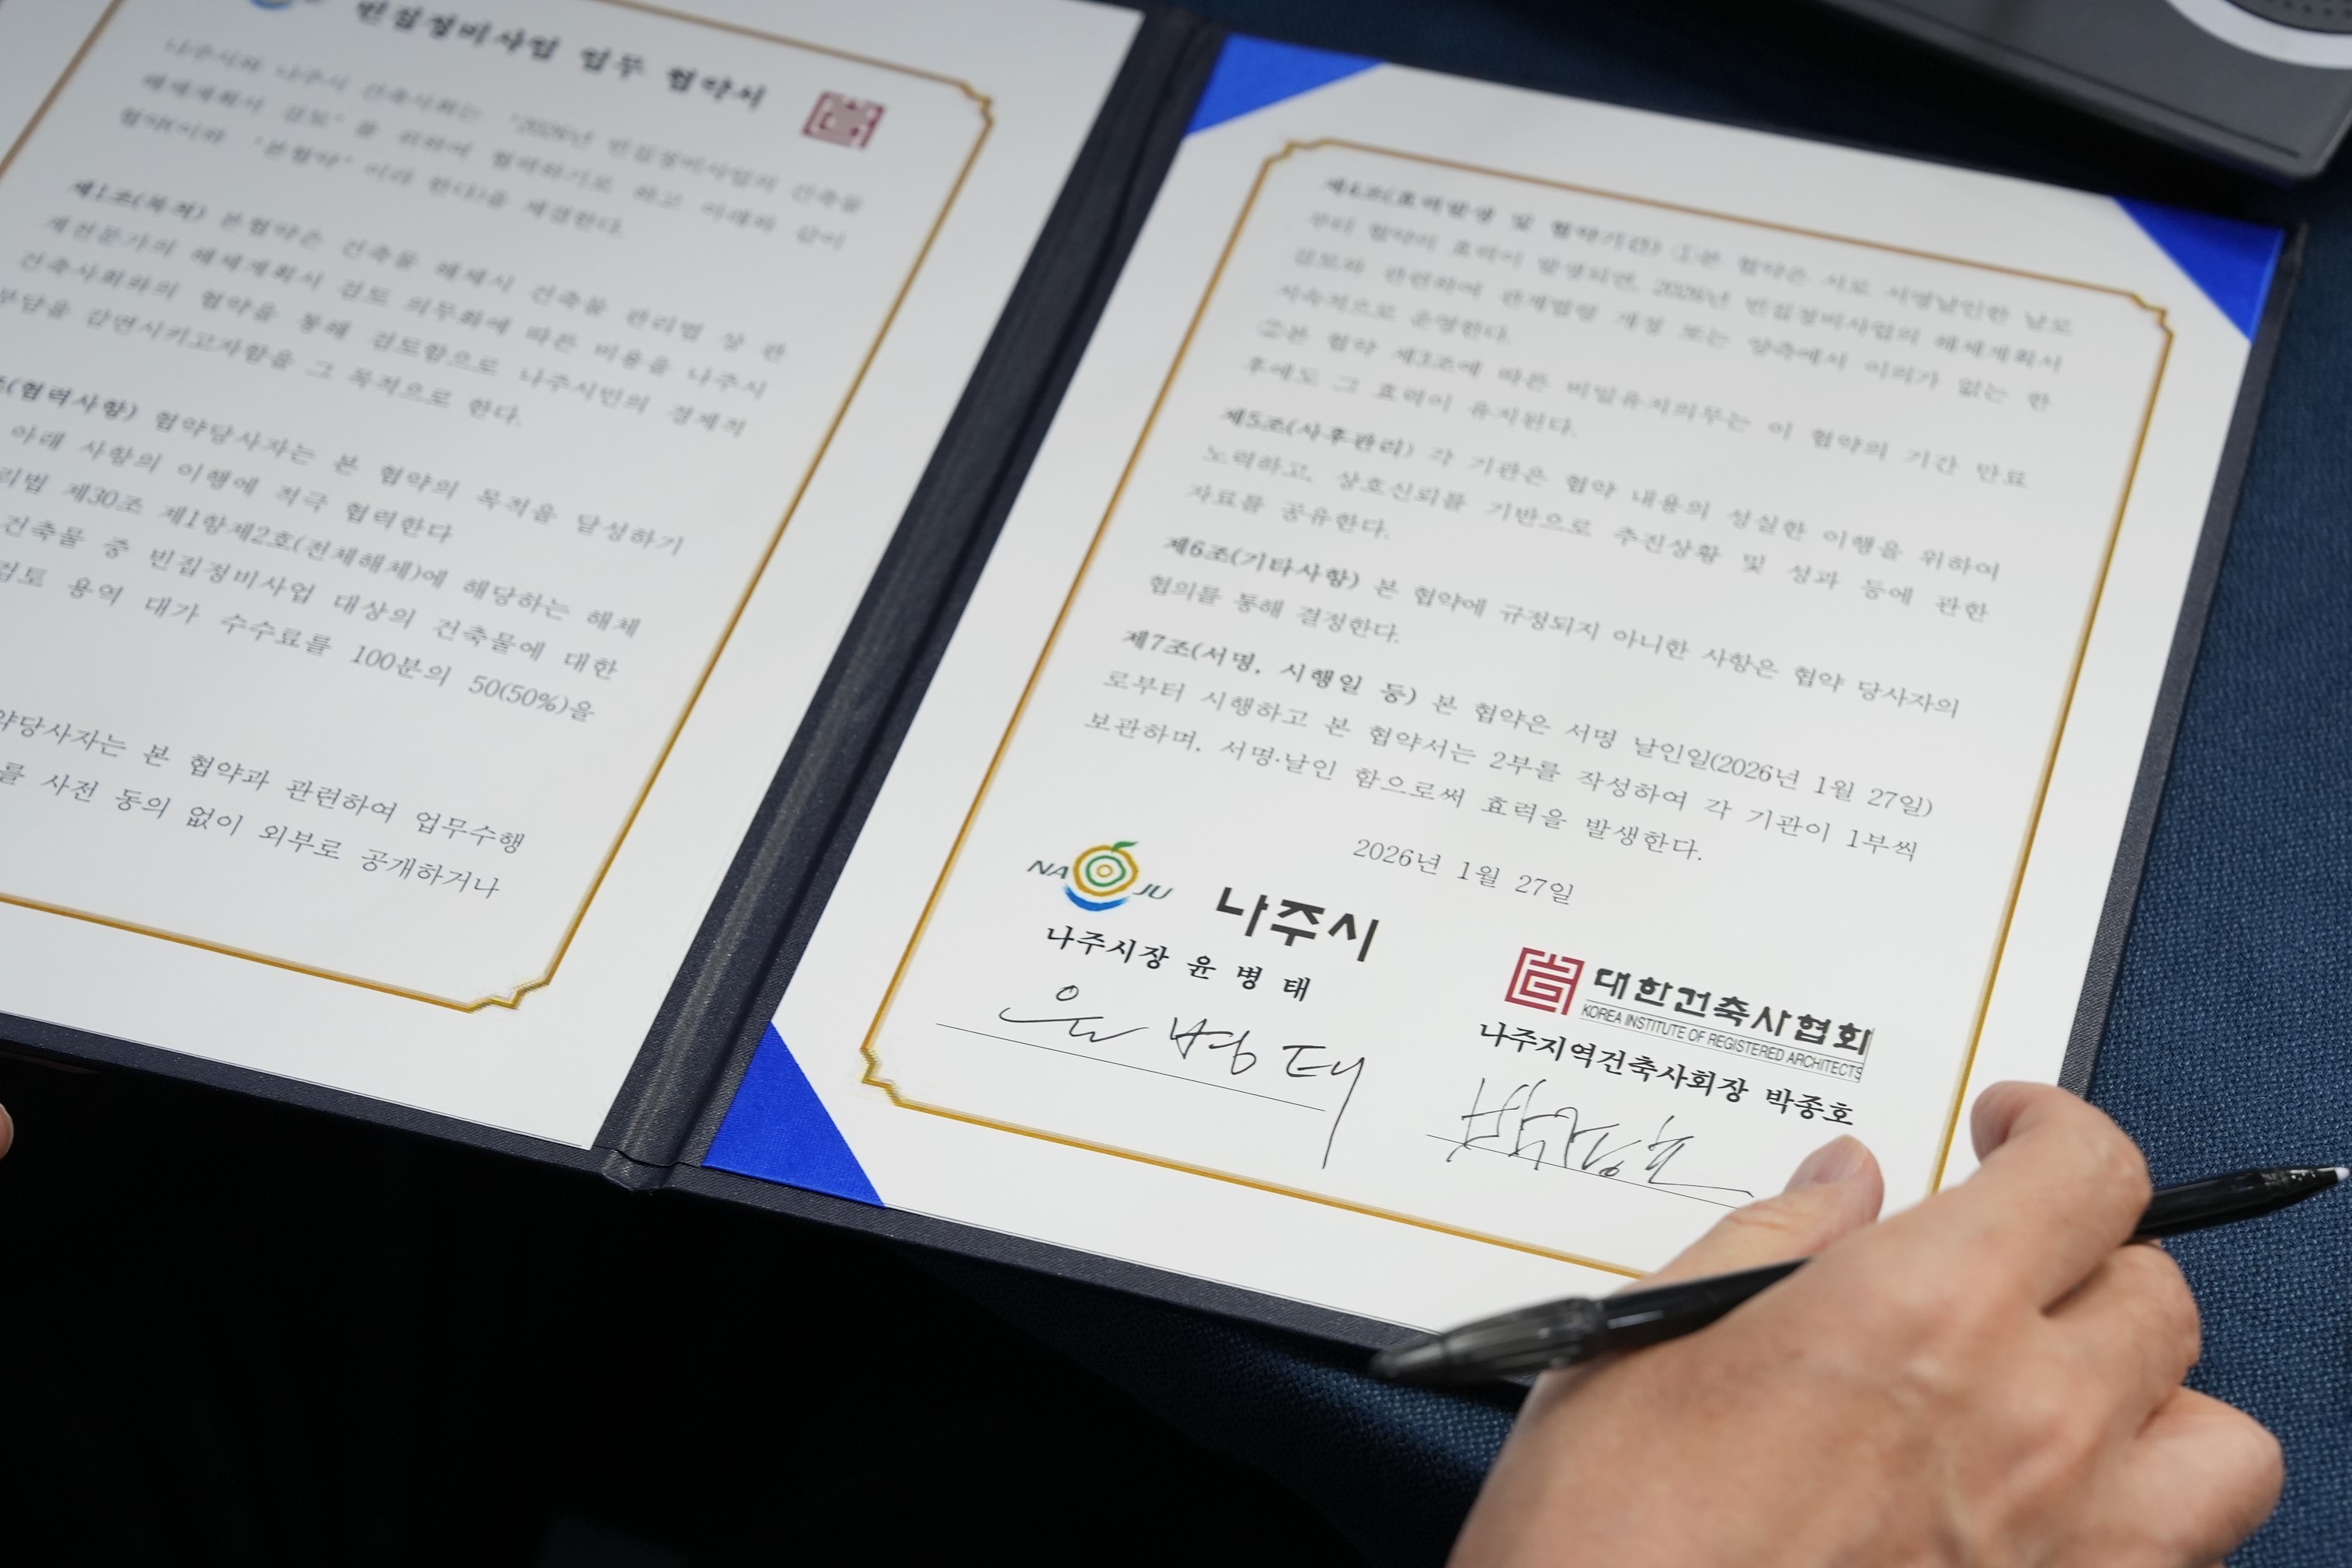 빈집정비사업 업무 협약서
나주시와 나주시 건축사회는 "2026년 빈집정비사업의 건축물
해체계획서 검토" 를 위하여 협력하기로 하고 아래와 같이
협약(이하 "본협약" 이라 한다)을 체결한다.
제1조(목적) 본협약은 건축물 해체시 건축물 관리법 상 관
계전문가의 해체계획서 검토 의무화에 따른 비용을 나주시
건축사회와의 협약을 통해 검토함으로 나주시민의 경제적
부담을 감면시키고자함을 그 목적으로 한다.
(협력사항) 협약당사자는 본 협약의 목적을 달성하기
아래 사항의 이행에 적극 협력한다
리법 제30조 제1항제2호(전체해체)에 해당하는 해체
건축물 중 빈집정비사업 대상의 건축물에 대한
검토 용역 대가 수수료를 100분의 50(50%)을
약당사자는 본 협약과 관련하여 업무수행
를 사전 동의 없이 외부로 공개하거나
제4조(효력발생 및 협약기간) ①본 협약은 서로 서명날인한 날로
부터 협약의 효력이 발생되면, 2026년 빈집정비사업의 해체계획서
검토와 관련하여 관계법령 개정 또는 양측에서 이의가 없는 한
지속적으로 운영한다.
②본 협약 제3조에 따른 비밀유지의무는 이 협약의 기간 만료
후에도 그 효력이 유지된다.
제5조(사후관리) 각 기관은 협약 내용의 성실한 이행을 위하여
노력하고, 상호신뢰를 기반으로 추진상황 및 성과 등에 관한
자료를 공유한다.
제6조(기타사항) 본 협약에 규정되지 아니한 사항은 협약 당사자의
협의를 통해 결정한다.
제7조(서명, 시행일 등) 본 협약은 서명 날인일(2026년 1월 27일)
로부터 시행하고 본 협약서는 2부를 작성하여 각 기관이 1부씩
보관하며, 서명·날인 함으로써 효력을 발생한다.
2026년 1월 27일
NAJU 나주시
나주시장 윤 병 태
윤 병 태
대한건축사협회
KOREA INSTITUTE OF REGISTERED ARCHITECTS
나주지역건축사회장 박종호